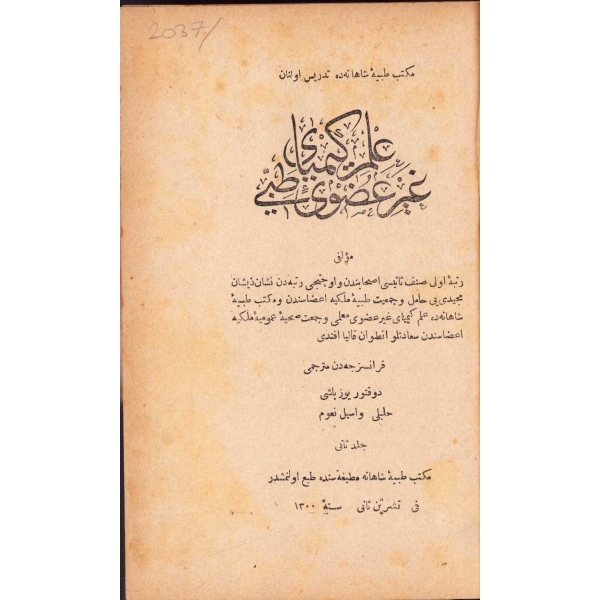 2037/
مكتب طبيهٔ شاهانه‌ده تدريس اولنان
علم كيمياى
غير عضوئ طبى
مؤلفى
رتبهٔ اولى صنف ثانيسى اصحابندن و اوچنجى رتبه‌دن نشان ذيشان
مجيدى‌يى حامل و جمعيت طبيهٔ ملكيه اعضاسندن و مكتب طبيهٔ
شاهانه‌ده علم كيمياى غير عضوى معلمى و جمعت صحيهٔ عموميهٔ ملكيه
اعضاسندن سعادتلو انطوان قاليا افندى
فرانسزجه‌دن مترجمى
دوقتور يوزباشى
حلبلى واسيل نعوم
جلد ثانى
مكتب طبيهٔ شاهانه مطبعه‌سنده طبع اولنمشدر
فى تشرين ثانى سنهٔ ١٣٠٠